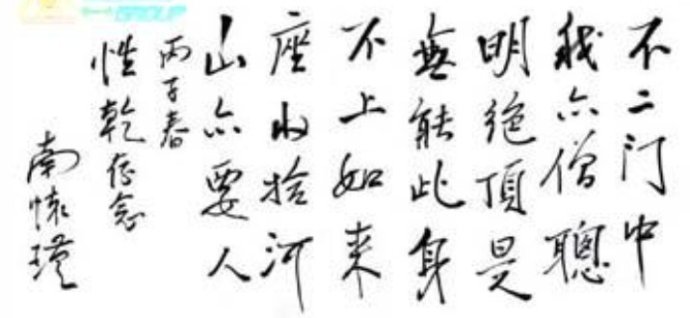 不二门中
我亦僧聰
明絕頂是
無能此身
不上如来
座收拾河
山亦要人
丙子春
性乾存念
南懷瑾
GROUP